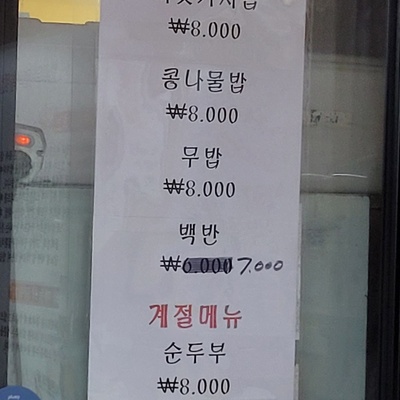 ₩8.000
콩나물밥
₩8.000
무밥
₩8.000
백반
₩6.000 7.000
계절메뉴
순두부
₩8.000